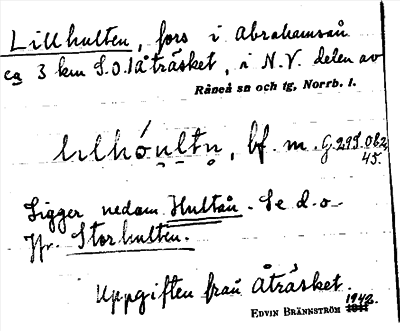 Lillhulten, fors i Abrahamsån
ca 3 km S.O. Iåträsket, i N.V. delen av
Råneå sn och tg, Norrb. l.
bf. m. G 299 082
45.
Ligger nedom Hultån. Se d.o.
Jfr. Storhulten.
Uppgiften från Åträsket.
EDVIN BRÄNNSTRÖM 1942.